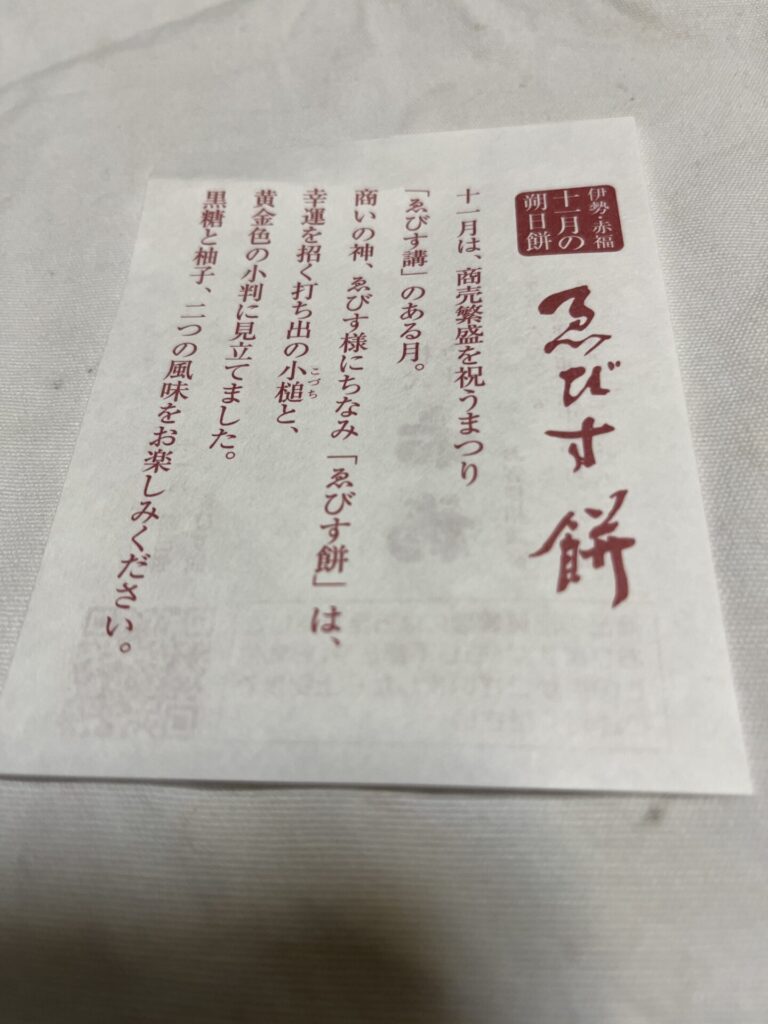 伊勢・赤福
十一月の
朔日餅
ゑびす餅
十一月は、商売繁盛を祝うまつり
「ゑびす講」のある月。
商いの神、ゑびす様にちなみ「ゑびす餅」は、
幸運を招く打ち出の小槌と、
こづち
黄金色の小判に見立てました。
黒糖と柚子、二つの風味をお楽しみください。